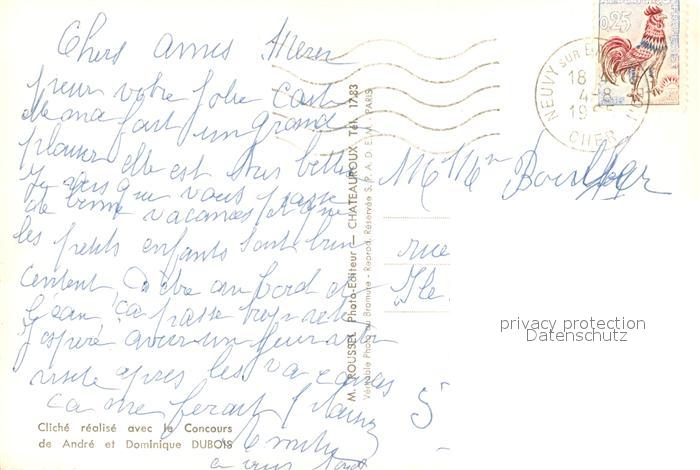 Chers amis Merci
pour votre jolie carte
elle m'a fait un grand
plaisir elle est très belle
je vois que vous passe
de bonne vacances et que
les petits enfants sont bien
content d'être au bord de
l'eau ça passe trop vite
J'espère avoir un
visite apres les vacances
ça me ferait plaisir
a vous
Cliché réalisé avec le Concours
de André et Dominique DUBOIS
M. ROUSSEL Photo-Editeur - CHATEAUROUX Tél. 17.83
Véritable Photo au Bromure - Reprod. Réservée S.P.A.D.E.M. PARIS
0,25
NEUVY SUR
18
4-8
19
CHER
M Mme
rue
Ile
5
privacy protection
Datenschutz